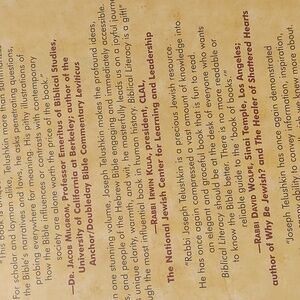 For scholar and layman alike, Telushkin more than summarizes
the Bible's narratives and laws, he asks questions,
probing everywhere for meaning. His pithy illustrations of
how the Bible interacts or contrasts with contemporary
society are alone worth the price of the book."
—DR. JACOB MILGROM, Professor Emeritus of Biblical Studies,
University of California at Berkeley; author of the
Anchor/Doubleday Bible Commentary Leviticus
in one stunning volume, Joseph Telushkin makes the profound ideas,
and people of the Hebrew Bible engaging and immediately accessible.
unique clarity, warmth, and wit, he masterfully leads us on a joyful journ
ugh the most influential book in human history. Biblical Literacy is a gift!"
—RABBI IRWIN KULA, president, CLAL,
The National Jewish Center for Learning and Leadership
"Rabbi Joseph Telushkin is a precious Jewish resource.
He has once again compressed a vast amount of knowledge into
an elegant and graceful book that is fun to read.
Biblical Literacy should be at the desk of everyone who wants
to know the Bible better; there is no more readable or
reliable guide to the 'book of books.'"
—RABBI DAVID WOLPE, Sinai Temple, Los Angeles;
author of Why Be Jewish? and The Healer of Shattered Hearts
"Joseph Telushkin has once again demonstrated
ability to convey information, inspiration,